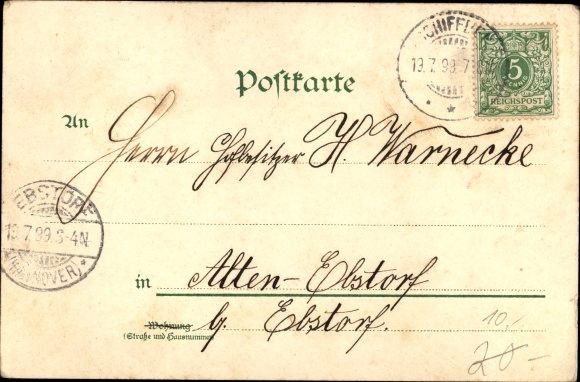 SCHIFFD
19.7.99.7
5
REICHSPOST
Postkarte
An
Herrn Hofbesitzer H. Warnecke
EBSTORF
19.7.99.3-4N.
(HANNOVER)
in Alten-Ebstorf
Wohnung b. Ebstorf.
(Straße und Hausnummer)
10,-
20-